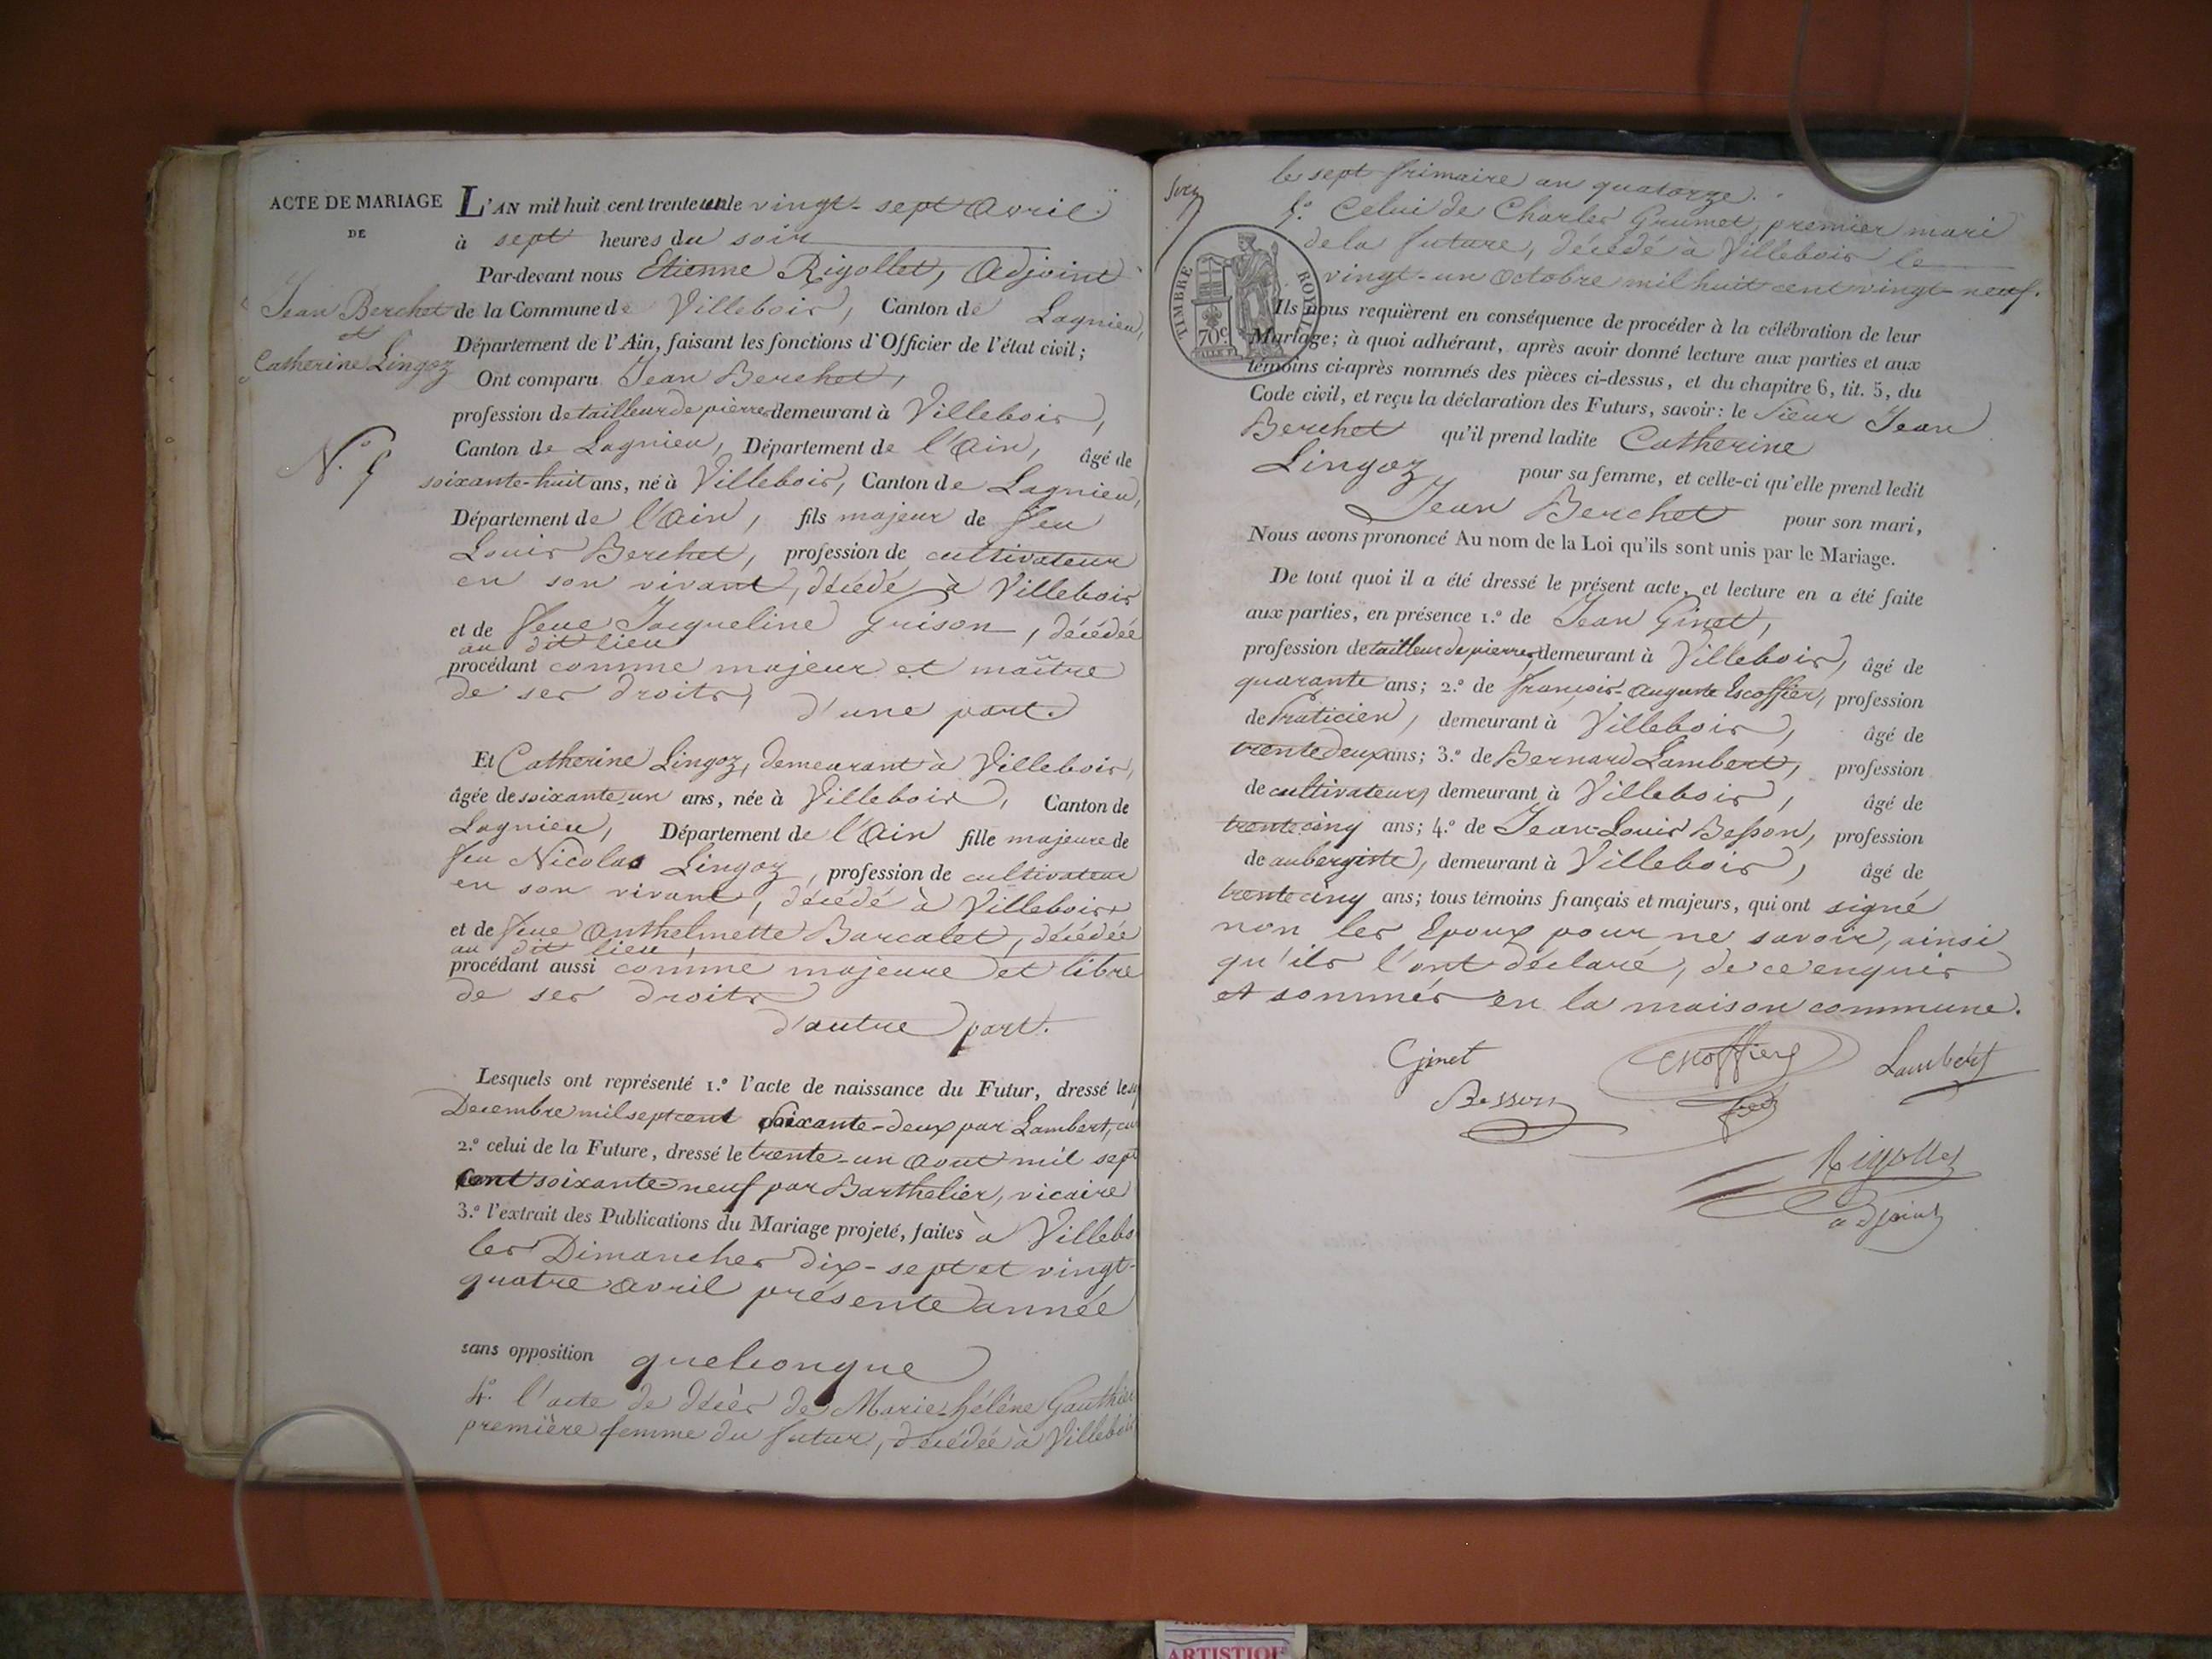 ACTE DE MARIAGE
DE
Jean Berchet
et
Catherine Lingoz
N.° 5
L'AN mil huit cent trente un le vingt-sept avril
à sept heures du soir
Par-devant nous Etienne Rigollet, Adjoint
de la Commune de Villebois, Canton de Lagnieu,
Département de l'Ain, faisant les fonctions d'Officier de l'état civil;
Ont comparu Jean Berchet,
profession de tailleur de pierres demeurant à Villebois,
Canton de Lagnieu, Département de l'Ain, âgé de
soixante-huit ans, né à Villebois, Canton de Lagnieu,
Département de l'Ain, fils majeur de feu
Louis Berchet, profession de cultivateur
en son vivant, décédé à Villebois
et de feue Jacqueline Grison, décédée
au dit lieu
procédant comme majeur et maître
de ses droits,
d'une part.
Et Catherine Lingoz, demeurant à Villebois,
âgée de soixante-un ans, née à Villebois, Canton de
Lagnieu, Département de l'Ain fille majeure de
feu Nicolas Lingoz, profession de cultivateur
en son vivant, décédé à Villebois
et de feue Anthelmette Barcalet, décédée
au dit lieu,
procédant aussi comme majeure et libre
de ses droits
d'autre part.
Lesquels ont représenté 1.° l'acte de naissance du Futur, dressé le
Decembre mil sept cent soixante-deux par Lambert,
2.° celui de la Future, dressé le trente-un Aout mil sept
cent soixante-neuf par Barthelier, vicaire
3.° l'extrait des Publications du Mariage projeté, faites à Villebo
les Dimanches dix-sept et vingt-
quatre avril présente année
sans opposition quelconque
4.° l'acte de décès de Marie-hélène Gauthier
première femme du futur, décédée à Villebois
le sept frimaire an quatorze.
5.° Celui de Charles Grumet, premier mari
de la future, décédé à Villebois le
vingt-un Octobre mil huit cent vingt-neuf.
TIMBRE ROYAL
70c
Ils nous requièrent en conséquence de procéder à la célébration de leur
Mariage; à quoi adhérant, après avoir donné lecture aux parties et aux
témoins ci-après nommés des pièces ci-dessus, et du chapitre 6, tit. 5, du
Code civil, et reçu la déclaration des Futurs, savoir: le Sieur Jean
Berchet qu'il prend ladite Catherine
Lingoz pour sa femme, et celle-ci qu'elle prend ledit
Jean Berchet pour son mari,
Nous avons prononcé Au nom de la Loi qu'ils sont unis par le Mariage.
De tout quoi il a été dressé le présent acte, et lecture en a été faite
aux parties, en présence 1.° de Jean Ginet,
profession de tailleur de pierres, demeurant à Villebois, âgé de
quarante ans; 2.° de françois-auguste Escoffier, profession
de Praticien, demeurant à Villebois, âgé de
trente deux ans; 3.° de Bernard Lambert, profession
de cultivateur, demeurant à Villebois, âgé de
trente cinq ans; 4.° de Jean-Louis Besson, profession
de aubergiste, demeurant à Villebois, âgé de
trente cinq ans; tous témoins français et majeurs, qui ont signé
non les Epoux pour ne savoir, ainsi
qu'ils l'ont déclaré, de ce enquis
et sommés en la maison commune.
Ginet
Escoffier
Lambert
Besson
Rigollet
adjoint
ARTISTIQUE